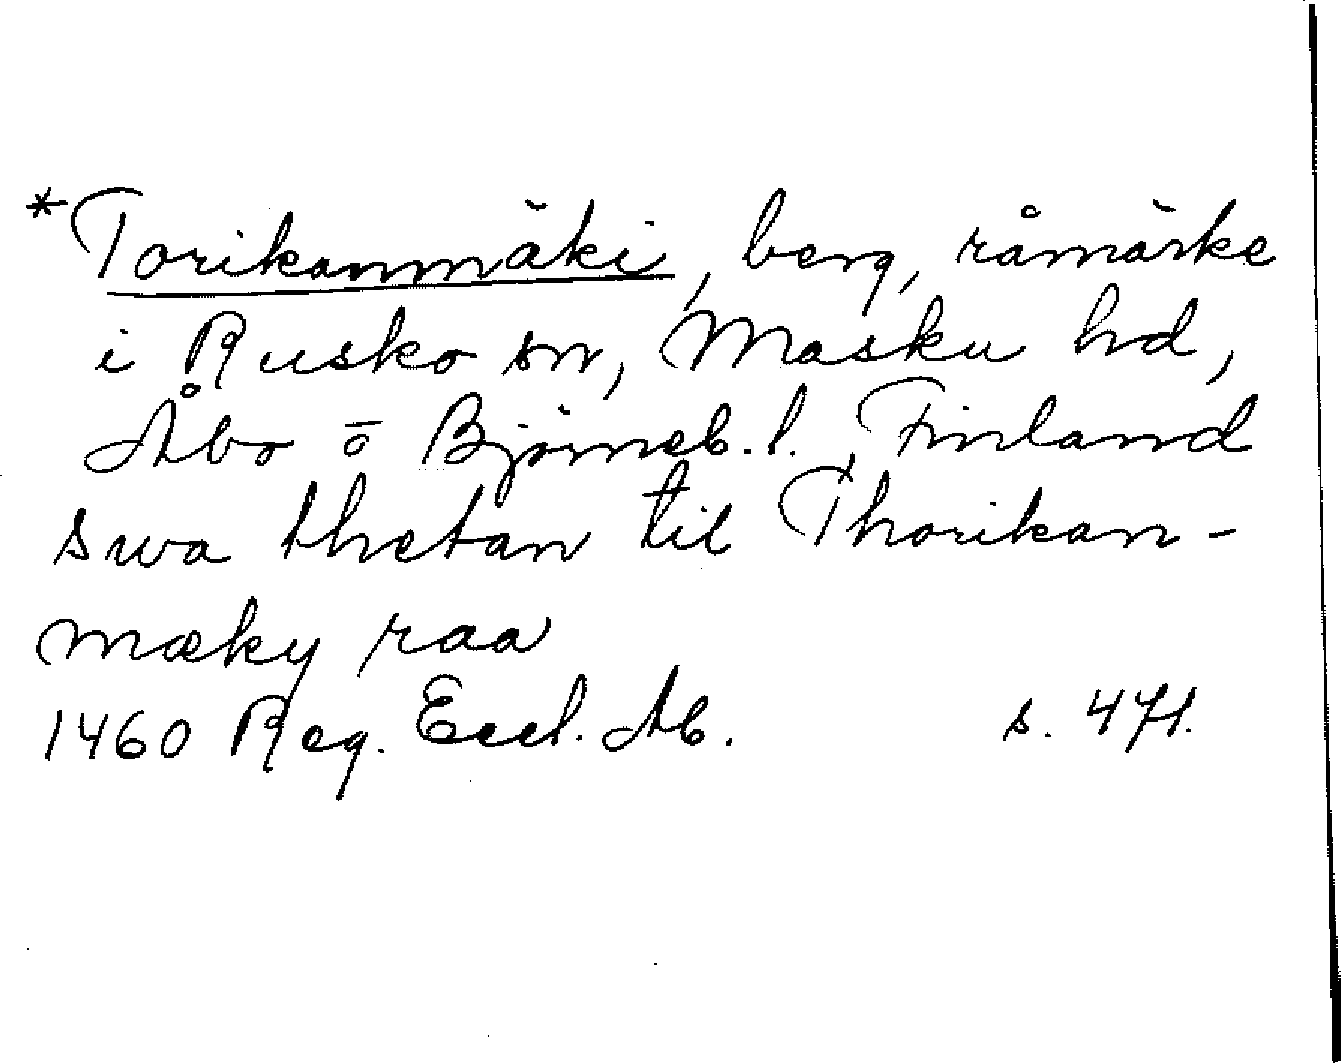 *Torikanmäki, berg, råmärke
i Rusko sn, Masku hd,
Åbo o Björneb. l., Finland
swa thetan til Thorikan-
mæky raa
1460 Reg. Eccl. Ab. s. 471.